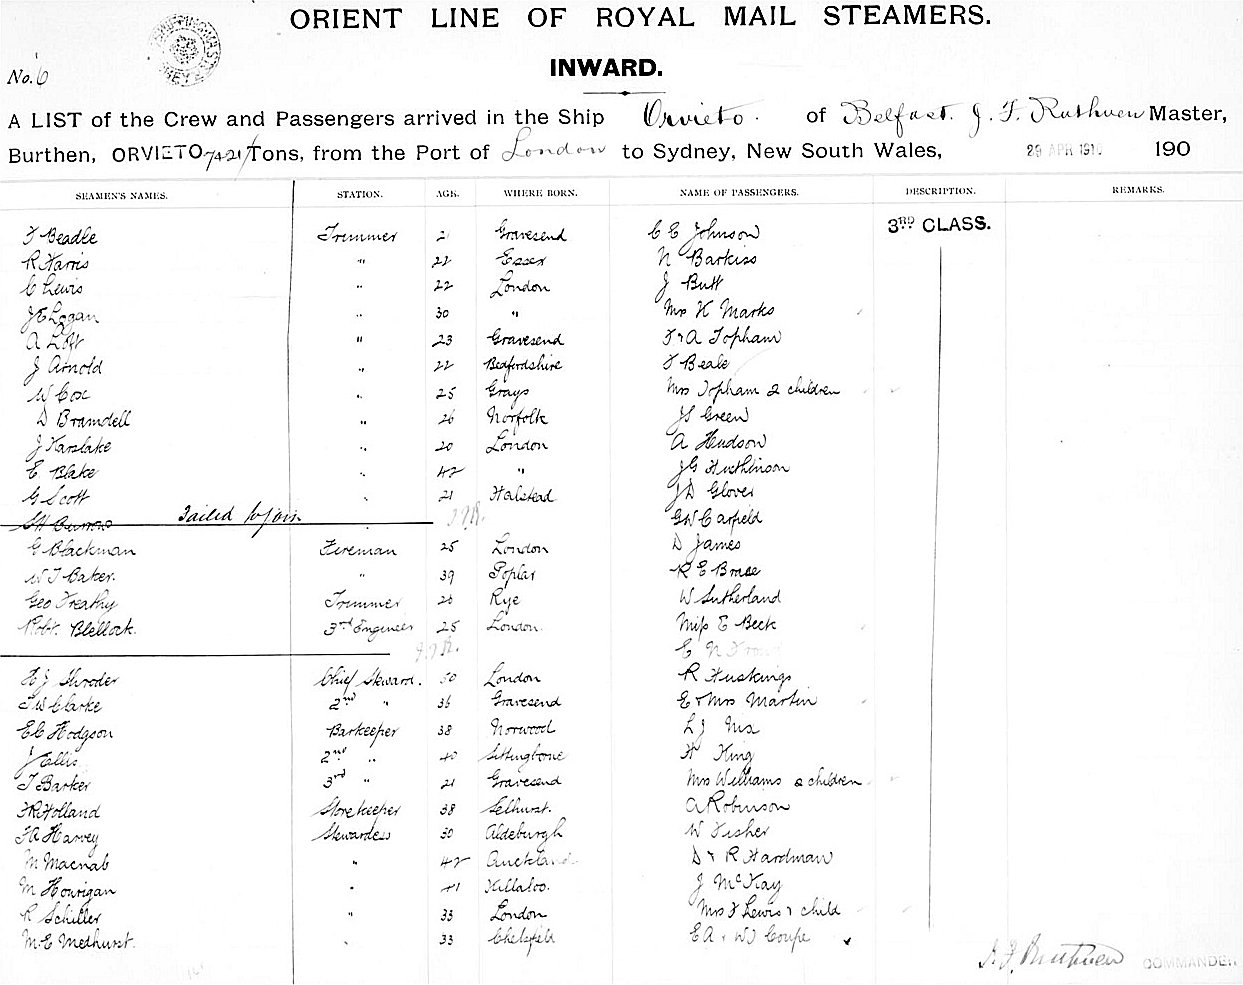 ORIENT LINE OF ROYAL MAIL STEAMERS.
No. 6
INWARD.
A LIST of the Crew and Passengers arrived in the Ship Orvieto. of Belfast. J. F. Ruthven Master,
Burthen, ORVIETO 7421 Tons, from the Port of London to Sydney, New South Wales, 29 APR 191 190
SEAMEN'S NAMES. STATION. AGE. WHERE BORN. NAME OF PASSENGERS. DESCRIPTION. REMARKS.
3RD CLASS.
F Beadle Trimmer 21 Gravesend C E Johnson
R Harris " 22 Essex N Barkiss
C Lewis " 22 London J Butt
J E Logan " 30 " Mrs K Marks
A Loft " 23 Gravesend F & A Topham
J Arnold " 22 Bedfordshire F Beale
W Cox " 25 Grays Mrs Topham 2 children
D Bramdell " 26 Norfolk JS Green
J Karslake " 20 London A Hudson
E Blake " 42 " JG Hutchinson
G Scott " 21 Halstead JD Glover
Burrows Failed to join GW Carfield
G Blackman Fireman 25 London D James
W J Baker. " 39 Poplar R E Brace
Geo Treathy Trimmer 28 Rye W Sutherland
Robt. Blellock. 3rd Engineer 25 London. Miss E Beck
E N
H J Shroder Chief Steward. 50 London R Huskings
J W Clarke 2nd " 36 Gravesend E & Mrs Martin
E C Hodgson Barkeeper 38 Norwood L J
J Ellis 2nd " 40 Sittingbourne H King
T Barker 3rd " 21 Gravesend Mrs Williams 2 children
FR Holland Storekeeper 38 Selhurst. A Robinson
F A Harvey Stewardess 30 Aldeburgh W Fisher
M Macnab " 42 Auckland D & R Hardman
M Hourigan " 41 Killaloo. J McKay
R Schiller " 33 London Mrs F Lewis & child
M.E Medhurst. " 33 Chelsfield EA & WJ Coupe
J. F. Ruthven COMMANDER